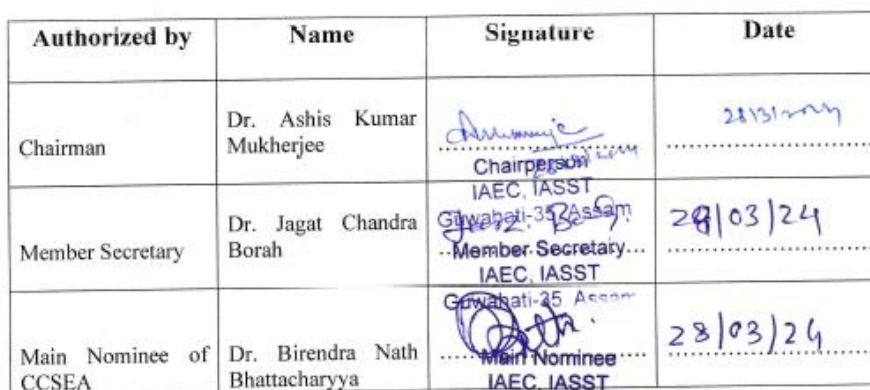 Authorized by Name Signature Date
Chairman
Dr. Ashis Kumar
Mukherjee
28/3/2024
Chairperson
IAEC, IASST
Guwahati-35, Assam
Member Secretary
Dr. Jagat Chandra
Borah
28/03/24
Member Secretary
IAEC, IASST
Guwahati-35 Assam
Main Nominee of
CCSEA
Dr. Birendra Nath
Bhattacharyya
28/03/24
Main Nominee
IAEC, IASST